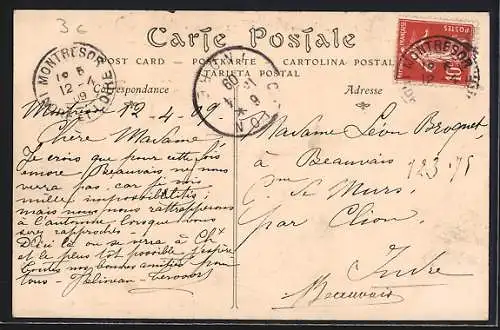 3c
Carte Postale
POST CARD - POSTKARTE - CARTOLINA POSTALE
TARJETA POSTAL
Correspondance
Adresse
MONTRESOR
12-4
09
MONTRESOR
12
POSTES
10
Montrésor 12-4-09
Chère Madame
Je crois que pour cette fois
encore Beauvais ne nous
verra pas, car j'ai
mille impossibilités;
mais nous nous rattrapperons
à l'automne lorsque nous
serons rapprochés -
D'ici là on se verra à Ch
et le plus tôt possible j'espère
Toutes nos bonnes amitiés pour
tous -
Madame Léon Broquet,
à Beauvais
123.75
Cne de Murs,
par Clion,
Indre
Beauvais